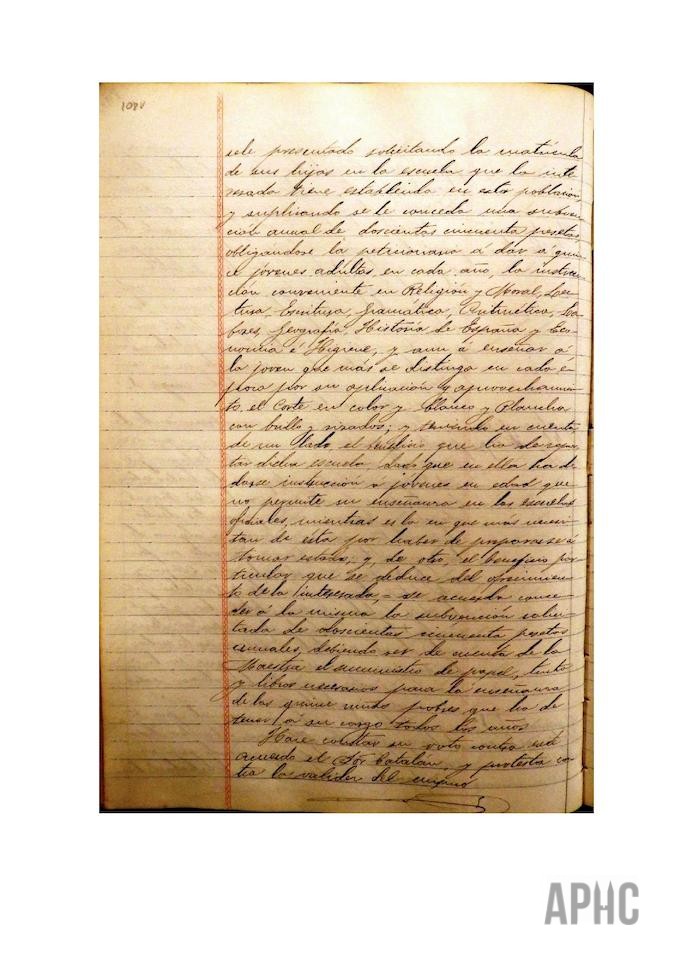 108v
sele presentado solicitando la matrícula
de sus hijas en la escuela que la inte-
resada tiene establecida en esta poblacion,
y suplicando se le conceda una subven-
ción anual de doscientas cincuenta pesetas,
obligándose la peticionaria á dar á quin-
ce jóvenes adultas, en cada año, la instruc-
ción conveniente en Religión y Moral, Lec-
tura, Escritura, Gramática, Aritmética, La-
bores, Geografía, Historia de España y Eco-
nomía é Higiene, y aun á enseñar á
la joven que más se distinga en cada é-
poca por su aplicación y aprovechamien-
to, el Corte en color y blanco y Plancha
con brillo y rizados; y teniendo en cuenta
de un lado, el beneficio que ha de repor-
tar dicha escuela, dado que en ella ha de
darse instrucción á jóvenes en edad que
no permite su enseñanza en las escuelas
oficiales, mientras es la en que más necesi-
tan de ésta por haber de prepararse á
tomar estado; y, de otro, el beneficio par-
ticular que se deduce del ofrecimien-
to de la interesada, = se acuerda conce-
der á la misma la subvención solici-
tada de doscientas cincuenta pesetas
anuales, debiendo ser de cuenta de la
Maestra el suministro de papel, tinta
y libros necesarios para la enseñanza
de las quince niñas pobres que ha de
tener á su cargo todos los años
Hace constar su voto contra este
acuerdo el Sor. Catalan, y protesta con-
tra la validez del mismo
APHC